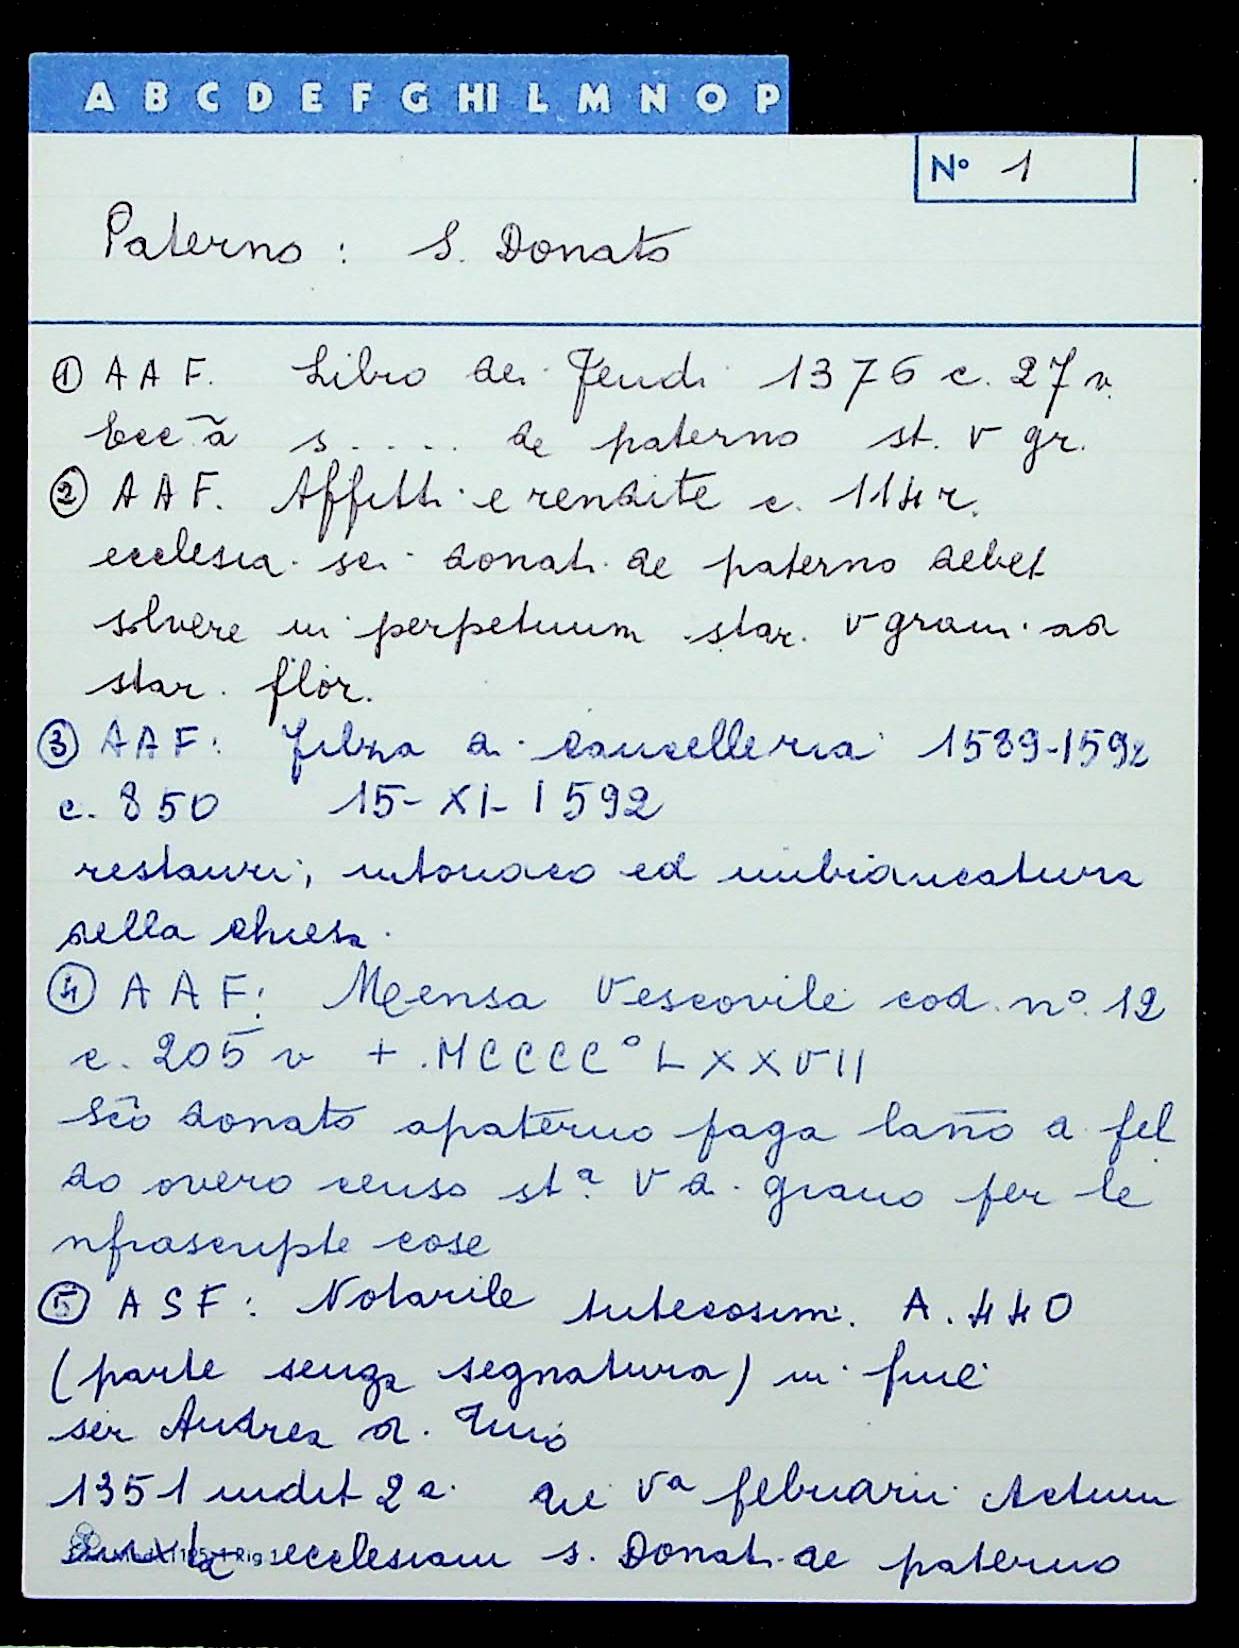 A B C D E F G HI L M N O P
N° 1
Paterno: S. Donato
① AAF. Libro dei Feudi 1376 c. 27 v.
Ecc.ã s.... de paterno st. V gr.
② AAF. Affitti e rendite c. 114 r.
ecclesia sci donati de paterno debet
solvere in perpetuum star. V grani ad
star. flor.
③ AAF: Filza di cancelleria 1589-1592
c. 850 15-XI-1592
restauri, intonaco ed imbiancatura
della chiesa.
④ AAF: Mensa Vescovile cod. n°. 12
c. 205 v + .MCCCC°LXXVII
Scõ donato apaterno paga lanno di fel
do overo censo stª. V di grano per le
nfrascripte cose
⑤ ASF: Notarile antecosim. A. 440
(parte senza segnatura) in fine
ser Andrea di
1351 indit 2ª. die Vª februarii Actum
ecclesiam s. Donati de paterno